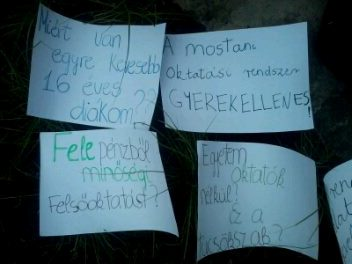 Miért van
egyre kevesebb
16 éves
diákom??
A mostani
oktatási rendszer
GYEREKELLENES!
Fele pénzből
minőségi
Felsőoktatást?
Egyetem
oktatók
nélkül?
Ez a